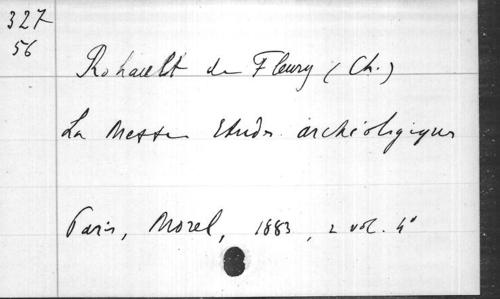 327
56
Rohault de Fleury (Ch.)
La Messe Etudes archéologiques
Paris, Morel, 1883, 2 vol. 4°